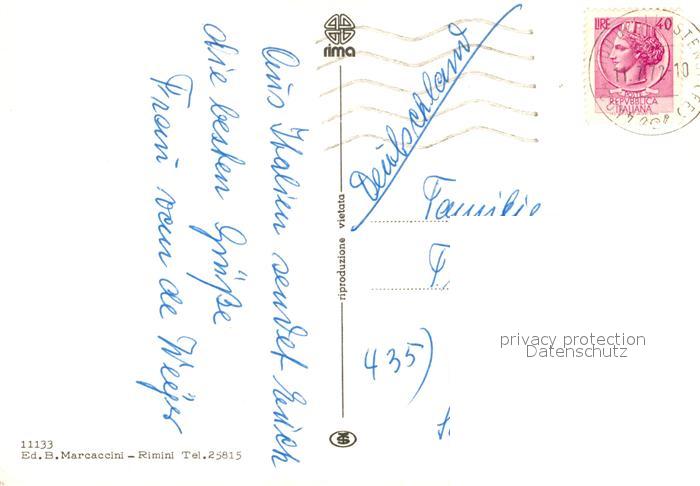 Aus Italien sendet Euch
die besten Grüße
Frani van de
rima
riproduzione vietata
Deutschland
Familie
435)
LIRE 40
POSTE
REPVBBLICA
ITALIANA
privacy protection
Datenschutz
11133
Ed. B. Marcaccini - Rimini Tel. 25815